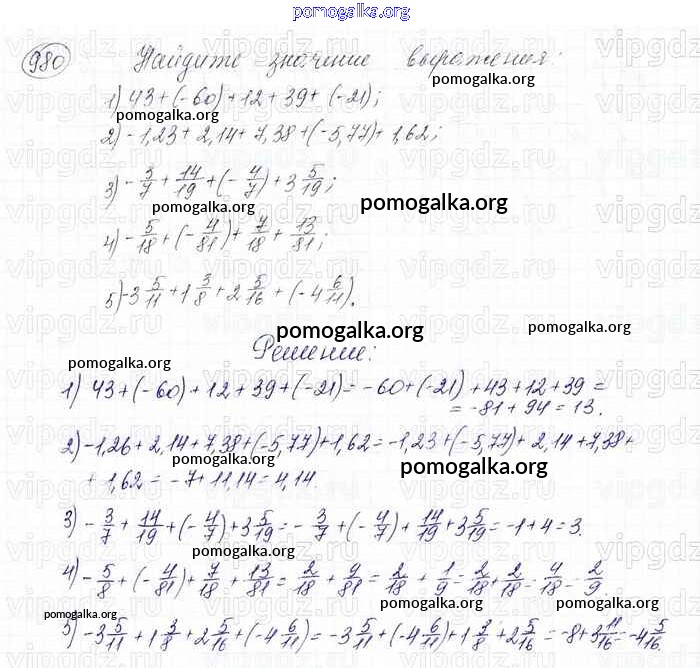 pomogalka.org
980
Найдите значение выражения:
1) 43+(-60)+12+39+(-21);
pomogalka.org
pomogalka.org
2) -1,23+2,14+7,38+(-5,77)+1,62;
3) -3/7+14/19+(-4/7)+3 5/19;
pomogalka.org
pomogalka.org
4) -5/18+(-4/81)+7/18+13/81;
5) -3 5/11+1 3/8+2 5/16+(-4 6/11).
pomogalka.org
pomogalka.org
Решение:
pomogalka.org
1) 43+(-60)+12+39+(-21)=-60+(-21)+43+12+39=
=-81+94=13.
pomogalka.org
2) -1,26+2,14+7,38+(-5,77)+1,62=-1,23+(-5,77)+2,14+7,38+
pomogalka.org
pomogalka.org
+1,62=-7+11,14=4,14.
3) -3/7+14/19+(-4/7)+3 5/19=-3/7+(-4/7)+14/19+3 5/19=-1+4=3.
pomogalka.org
4) -5/8+(-4/81)+7/18+13/81=2/18+9/81=2/18+1/9=2/18+2/18=4/18=2/9.
pomogalka.org
pomogalka.org
5) -3 5/11+1 3/8+2 5/16+(-4 6/11)=-3 5/11+(-4 6/11)+1 3/8+2 5/16=-8+3 11/16=-4 5/16.
pomogalka.org
vipgdz.com